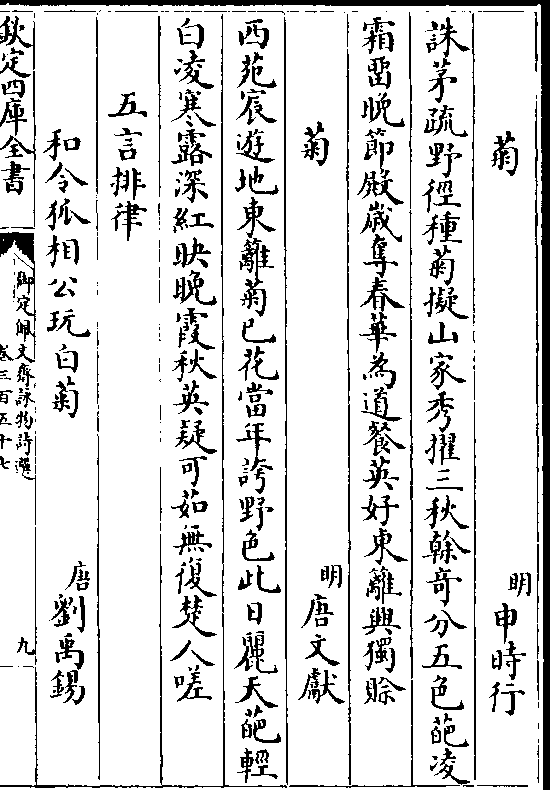 菊　明申時行
誅茅疏野徑種菊擬山家秀擢三秋榦奇分五色葩凌
霜留晚節殿歲奪春華為道餐英好東籬興獨賒
菊　明唐文獻
西苑宸遊地東籬菊已花當年誇野色此日麗天葩輕
白凌寒露深紅映晚霞秋英疑可茹無復楚人嗟
五言排律
和令狐相公玩白菊　唐劉禹錫
欽定四庫全書
御定佩文齋詠物詩選
卷三百五十七
九